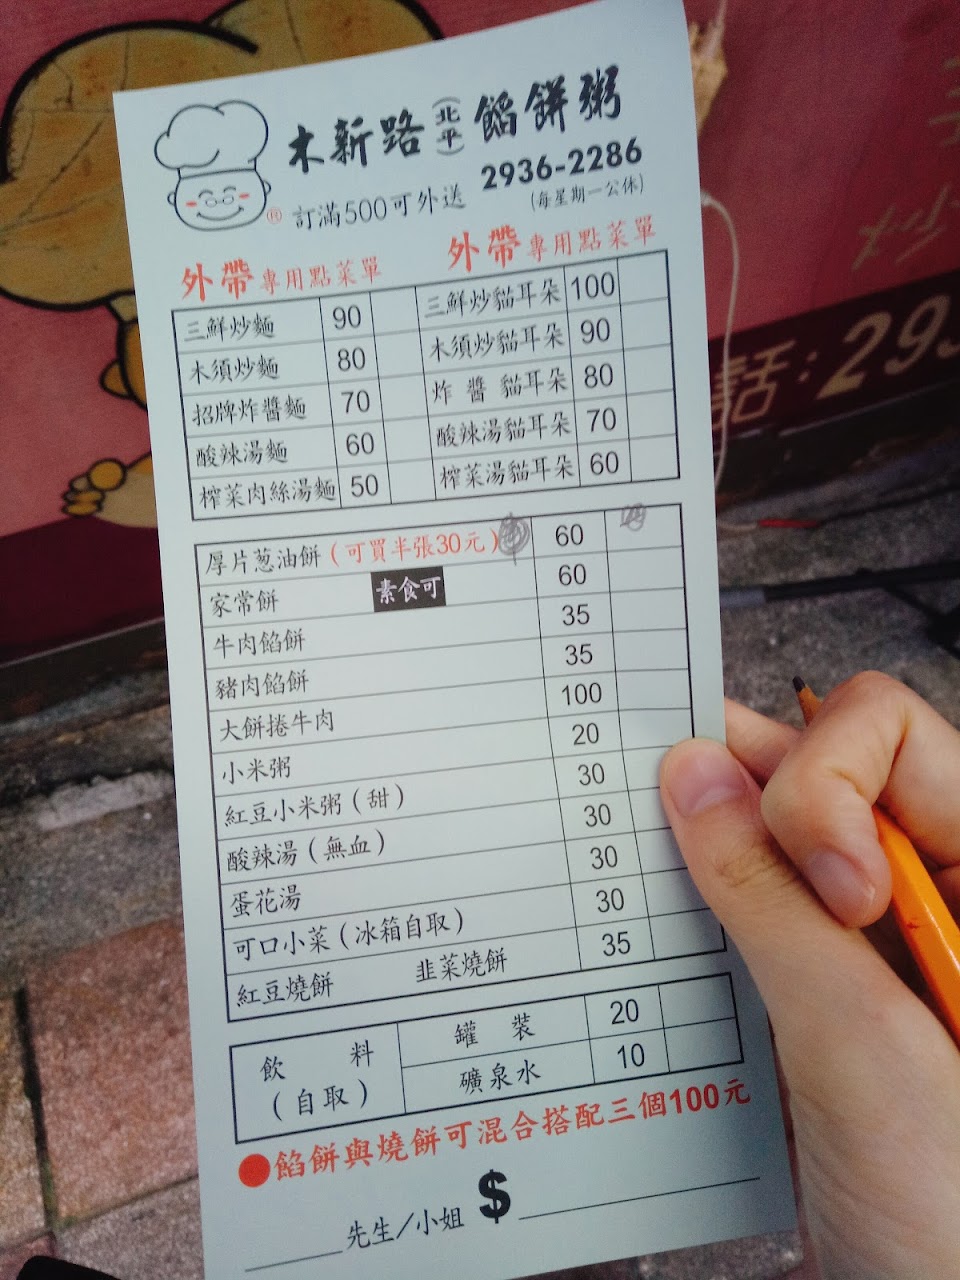 木新路(北平)餡餅粥
訂滿500可外送 2936-2286
®
(每星期一公休)
外帶專用點菜單 外帶專用點菜單
三鮮炒麵 90 三鮮炒貓耳朵 100
木須炒麵 80 木須炒貓耳朵 90
招牌炸醬麵 70 炸醬貓耳朵 80
酸辣湯麵 60 酸辣湯貓耳朵 70
榨菜肉絲湯麵 50 榨菜湯貓耳朵 60
厚片葱油餅(可買半張30元) 60
家常餅 素食可 60
牛肉餡餅 35
豬肉餡餅 35
大餅捲牛肉 100
小米粥 20
紅豆小米粥(甜) 30
酸辣湯(無血) 30
蛋花湯 30
可口小菜(冰箱自取) 30
紅豆燒餅 韭菜燒餅 35
飲料(自取) 罐裝 20
礦泉水 10
●餡餅與燒餅可混合搭配三個100元
先生/小姐 $
話:293